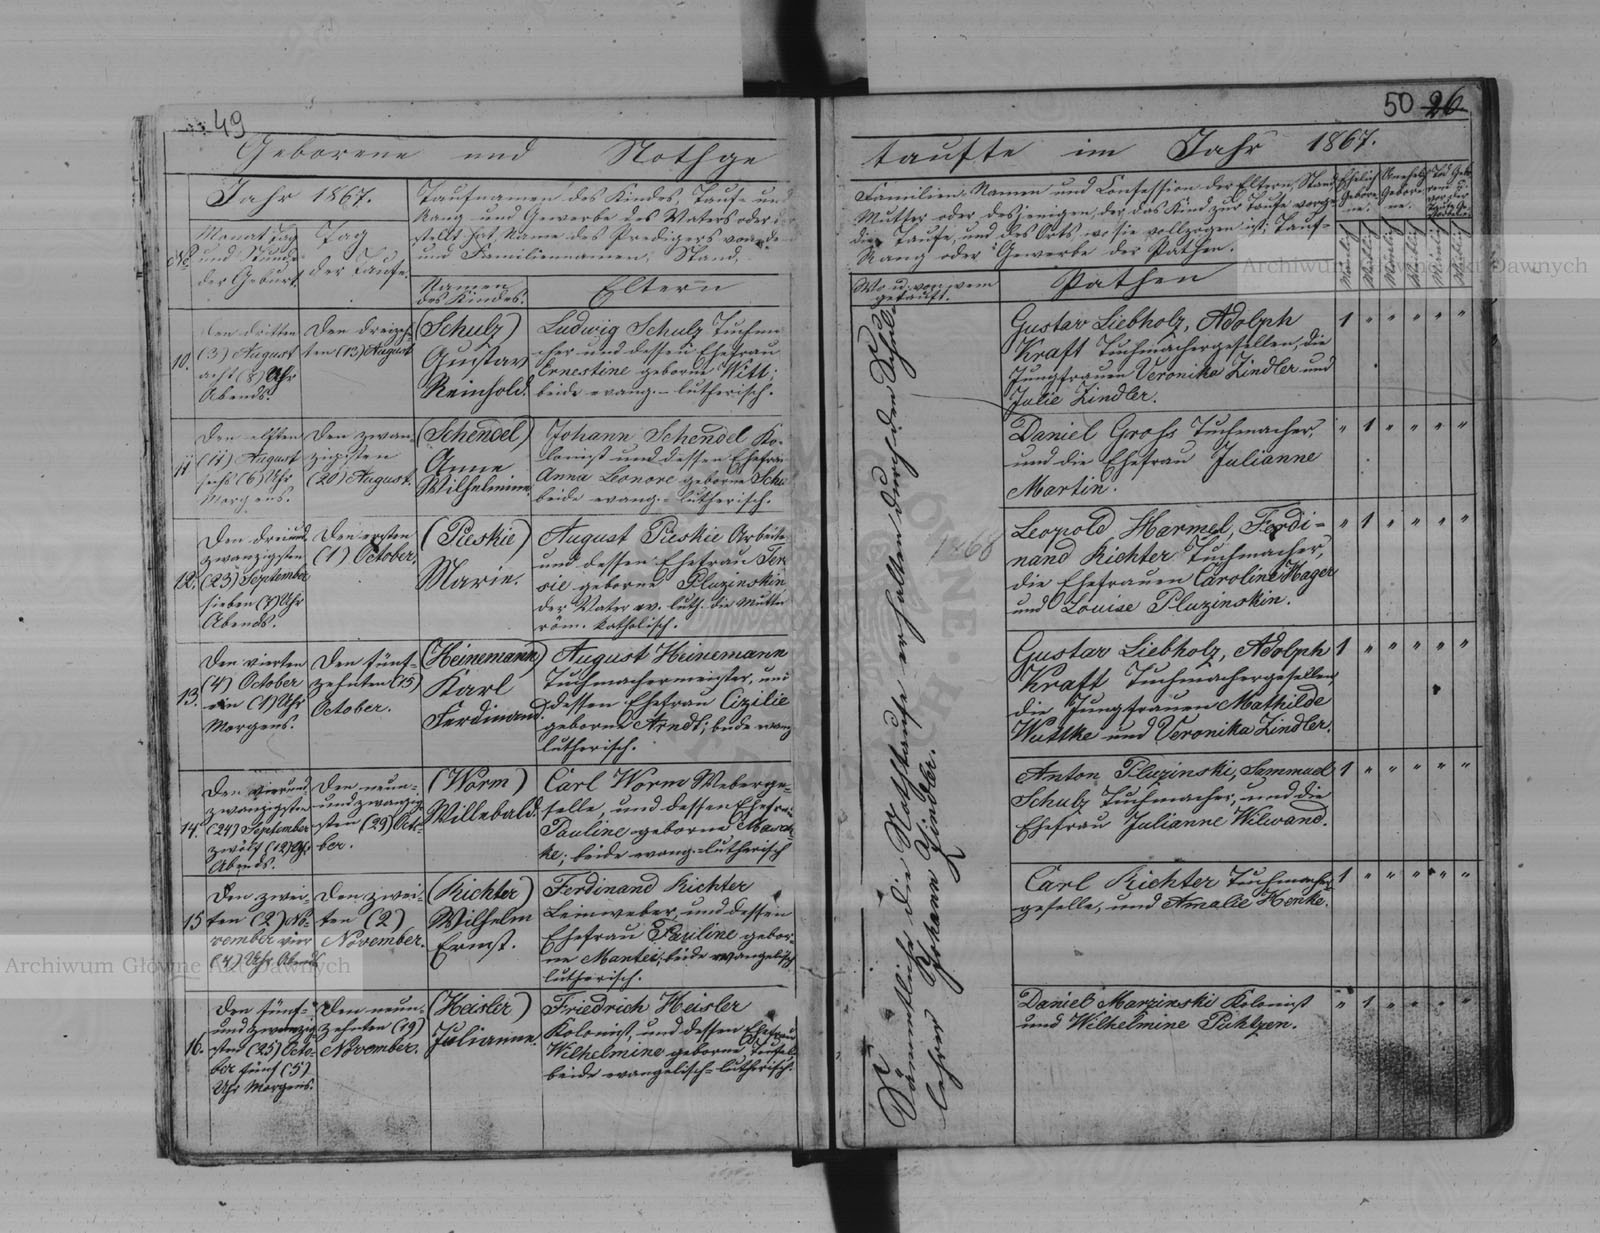 49
Geborene und Nothge
Jahr 1867.
Taufnamen des Kindes, Taufe und
Rang und Gewerbe des Vaters oder der
stellt hat, Name des Predigers von dem
und Familiennamen, Stand,
No
Monat Tag
und Stunde
der Geburt.
Tag
der Taufe.
Namen
des Kindes.
Eltern
10.
Den dritten
(3) August
acht (8) Uhr
Abends.
Den dreizeh-
ten (13) August
(Schulz)
Gustav
Reinhold.
Ludwig Schulz Tuchma
cher und dessen Ehefrau
Ernestine geborne Witt;
beide evang.-lutherisch.
11
Den elften
(11) August
sechs (6) Uhr
Morgens.
Den zwan-
zigsten
(20) August.
(Schendel)
Anne
Wilhelmine
Johann Schendel Ko-
lonist und dessen Ehefrau
Anna Leonore geborne Schu
beide evang.-lutherisch.
12.
Den dreiund
zwanzigsten
(23) September
sieben (7) Uhr
Abends.
Den ersten
(1) October.
(Pieskie)
Marie.
August Pieskie Arbeite
und dessen Ehefrau Ter
sie geborne Pluzinskin
der Vater ev. luth. die Mutter
röm. katholisch.
13.
Den vierten
(4) October
ein (1) Uhr
Morgens.
Den fünf-
zehnten (15)
October.
(Heinemann)
Karl
Ferdinand.
August Heinemann
Tuchmachermeister, und
dessen Ehefrau Cizilie
geborne Arndt; beide evang
lutherisch.
14.
Den vierund
zwanzigsten
(24) September
zwölf (12) Uhr
Abends.
Den neun-
undzwanzig-
sten (29) Octo-
ber.
(Worm)
Willebald.
Carl Worm Weberge-
selle, und dessen Ehefrau
Pauline geborne Masch
ke; beide evang.-lutherisch
15
Den zwei-
ten (2) No-
vember vier
(4) Uhr Abends
Den zwei-
ten (2)
November.
(Richter)
Wilhelm
Ernst.
Ferdinand Richter
Leinweber, und dessen
Ehefrau Pauline gebor-
ne Mantei; beide evangelisch
lutherisch.
16.
Den fünf-
und zwanzig
sten (25) Octo-
ber fünf (5)
Uhr Morgens.
Den neun-
zehnten (19)
November.
(Heisler)
Julianne.
Friedrich Heisler
Kolonist, und dessen Ehefrau
Wilhelmine geborne Teufel
beide evangelisch-lutherisch.
50 26
taufte im Jahr 1867.
Familien-Namen und Confession der Eltern, Stand,
Mutter oder desjenigen, der das Kind zur Taufe vorge
die Taufe, und des Orts, wo sie vollzogen ist; Tauf-
Rang oder Gewerbe der Pathen.
Ehelich
Geborene.
Unehelich
Geborene.
Mänlich
Weiblich
Mänlich
Weiblich
Mänlich
Weiblich
Wo u. von wem
getauft.
Pathen
Sämmtliche die Nothtaufe erhalten durch den Schul
lehrer Johann Zindler.
1868
Gustav Liebholz, Adolph
Kraft Tuchmachergesellen, die
Jungfrauen Veronika Zindler und
Julie Zindler.
1 " " " " "
Daniel Groß Tuchmacher,
und die Ehefrau Julianne
Martin.
" 1 " " " "
Leopold Harmel, Ferdi-
nand Richter Tuchmacher,
die Ehefrauen Caroline Hager
und Louise Pluzinskin.
" 1 " " " "
Gustav Liebholz, Adolph
Kraft Tuchmachergesellen
die Jungfrauen Mathilde
Wuttke und Veronika Zindler.
1 " " " " "
Anton Pluzinski, Sammuel
Schulz Tuchmacher, und die
Ehefrau Julianne Wilwand.
1 " " " " "
Carl Richter Tuchmacher
geselle, und Amalie Henke.
1 " " " " "
Daniel Marzinski Kolonist
und Wilhelmine Puhlzen.
" 1 " " " "
Archiwum Główne Akt Dawnych
Archiwum Główne Akt Dawnych